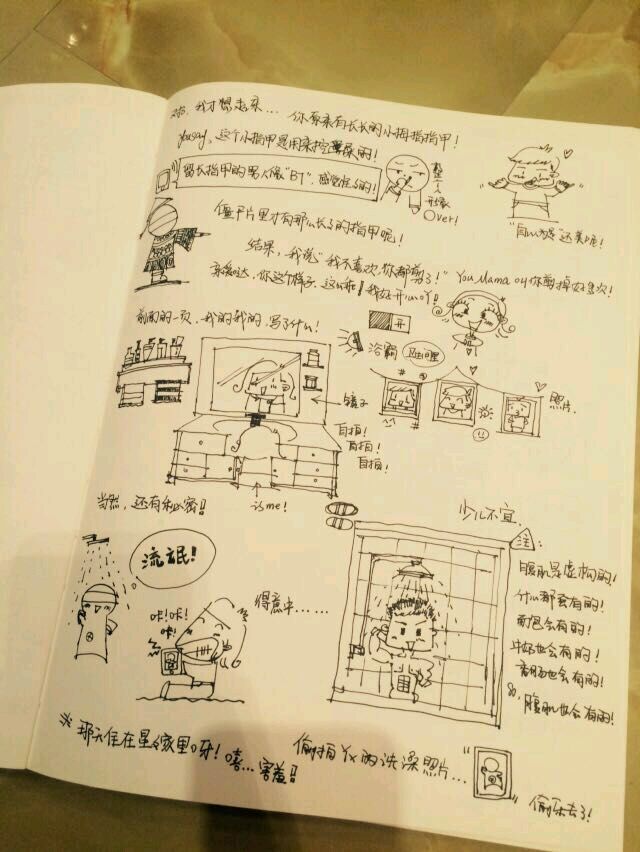 我才想起来... 你原来有长长的小拇指指甲!
You say, 这个小指甲是用来挖鼻屎的!
留长指甲的男人像"BT", 感觉怪怪的!
整个人
形象
Over!
"自以为是"还美呢!
僵尸片里才有那么长的指甲呢!
结果, 我说"我不喜欢, 你都剪了!" You Mama
你这个样子, 我好开心吖!
开
浴霸
照片.
前面的一页, 我的我的, 写了什么!
镜子
自拍!
自拍!
自拍!
is me!
当然, 还有秘密!!
少儿不宜.
注:
流氓!
咔!咔!
咔!
得意中......
腹肌是虚构的!
什么都会有的!
面包会有的!
牛奶也会有的!
香肠也会有的!
So, 腹肌也会有的!
※ 那天住在星家里呀! 嘻... 害羞!!
偷拍Yx的洗澡照片...
" "
偷乐去了!